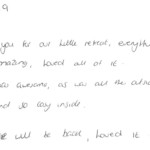 9
you for our little retreat, everything
amazing, loved all of it.
awesome, as was all the
and so cosy inside.
will be back, loved it